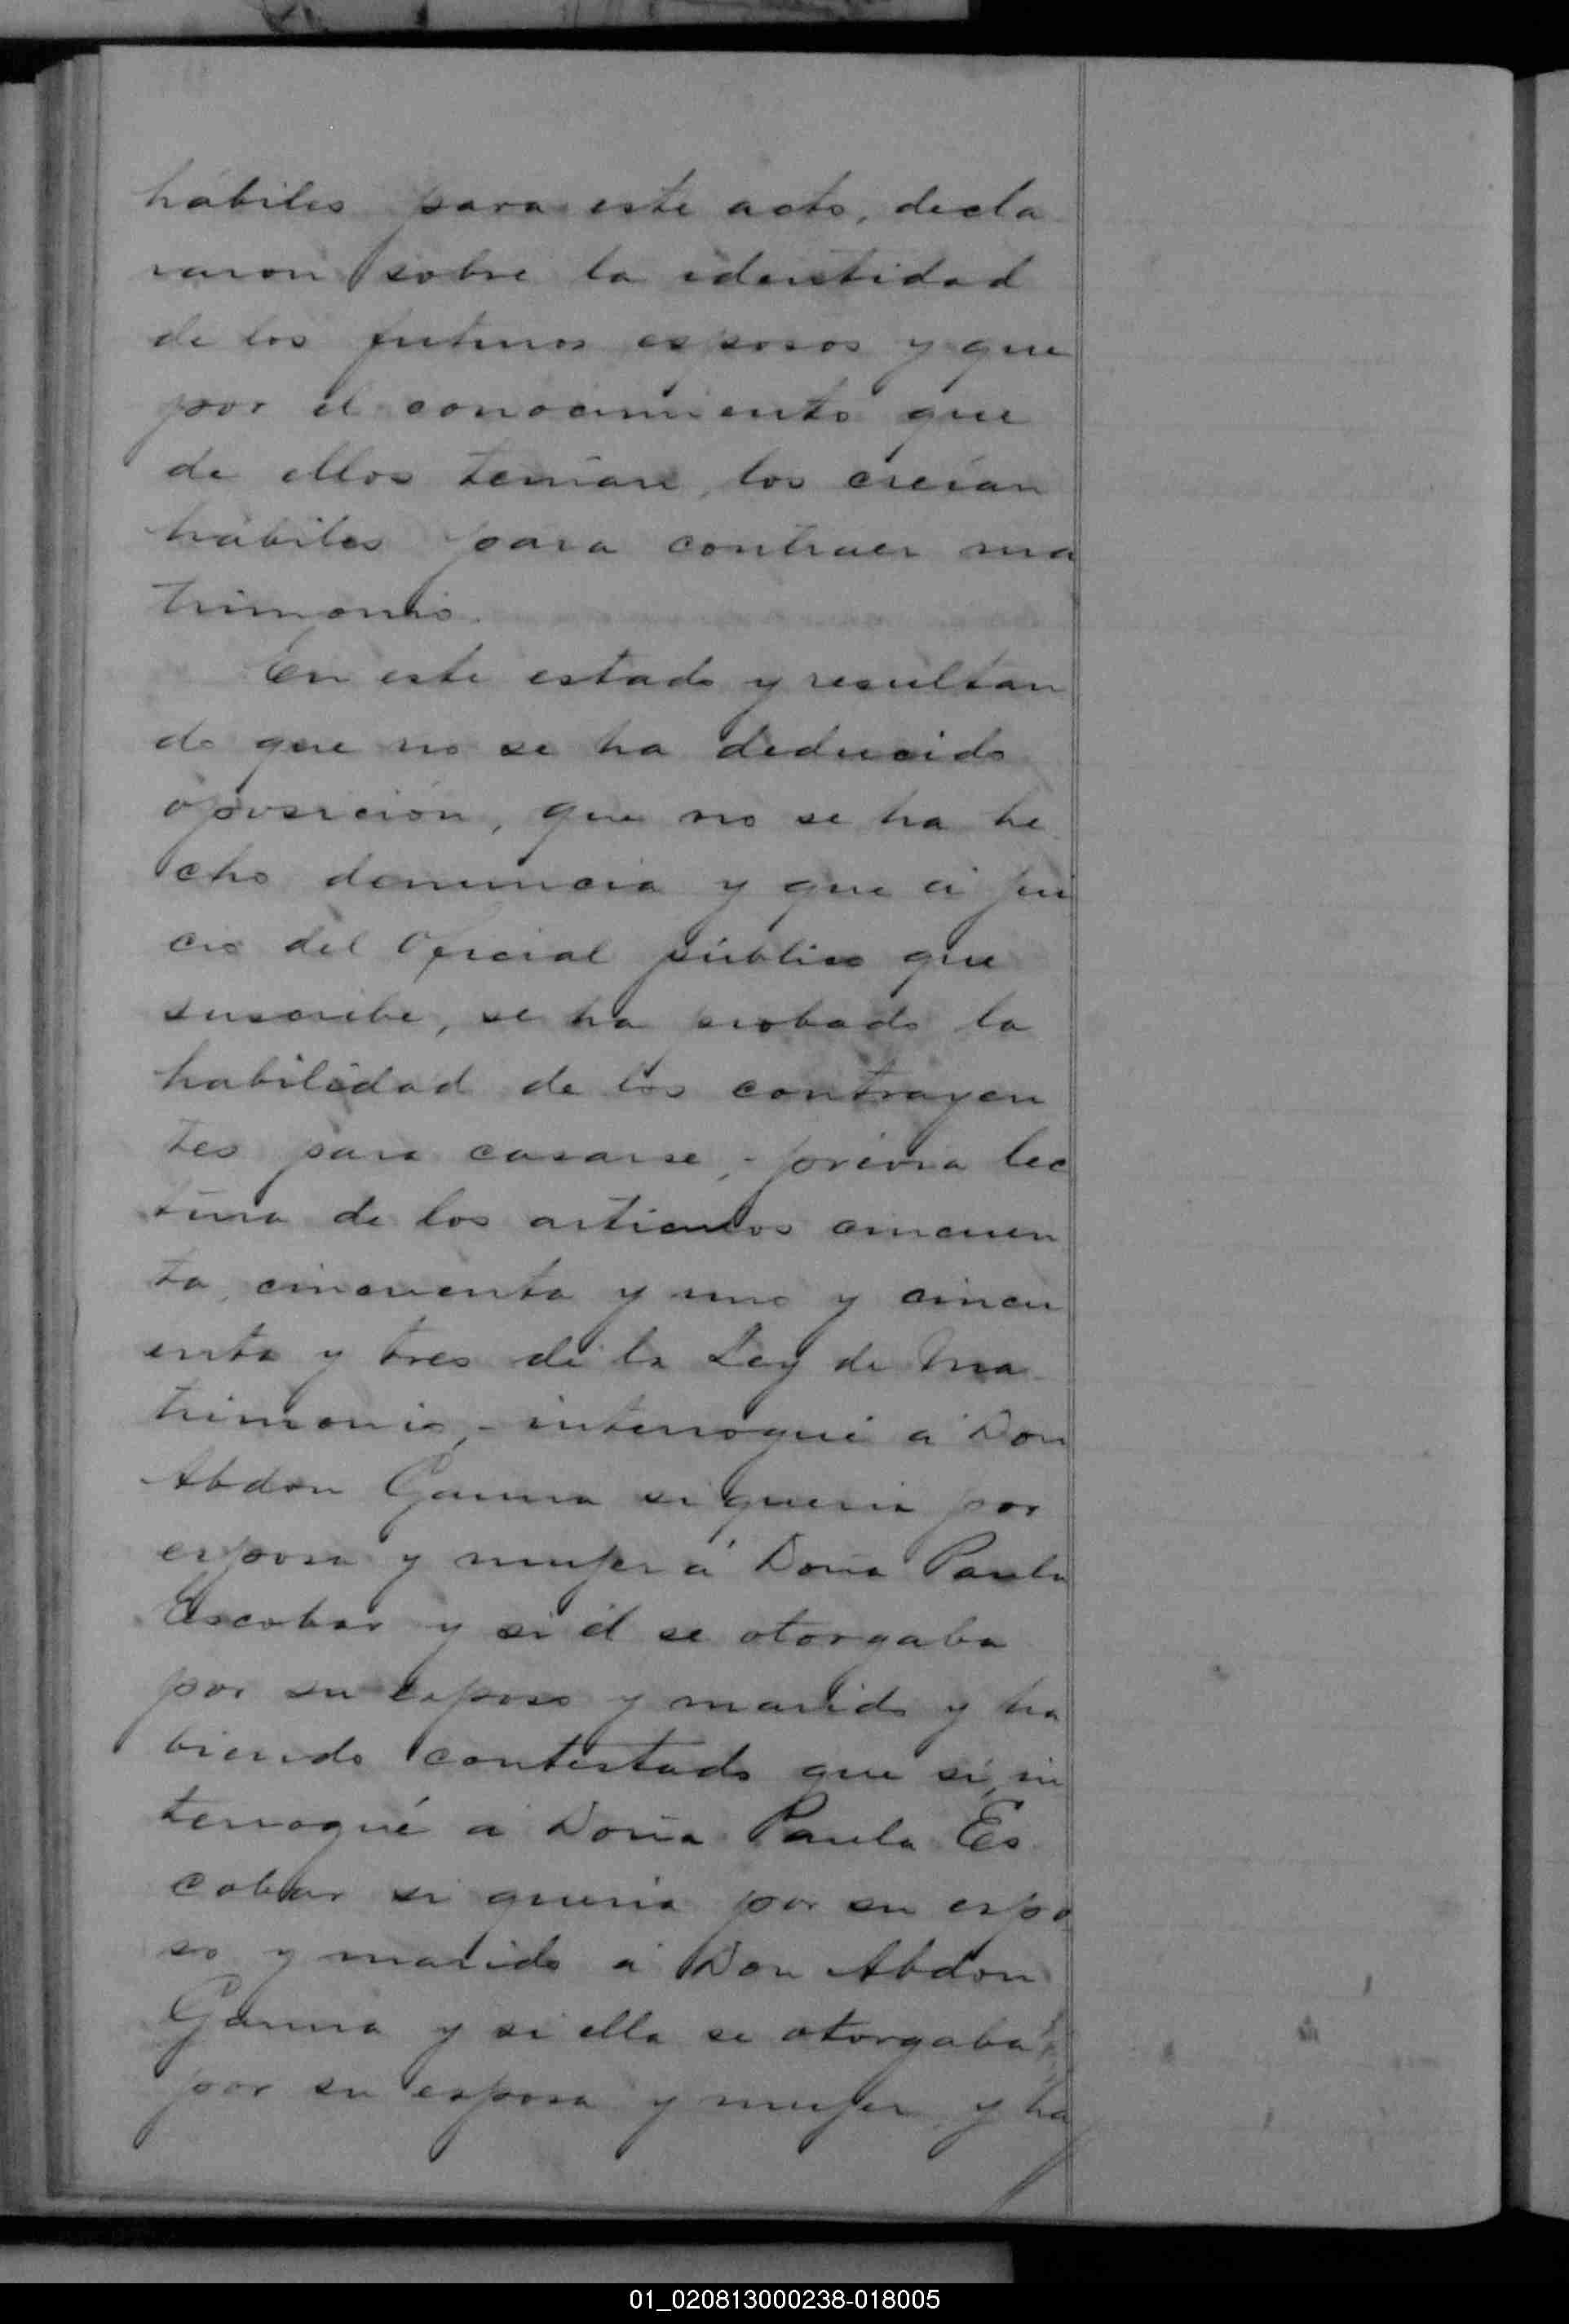 hábiles para este acto, decla
raron sobre la identidad
de los futuros esposos y que
por el conocimiento que
de ellos tenían, los creían
hábiles para contraer ma
trimonio.
En este estado y resultan
do que no se ha deducido
oposición, que no se ha he
cho denuncia y que á jui
cio del Oficial público que
suscribe, se ha probado la
habilidad de los contrayen
tes para casarse, - previa lec
tura de los artículos cincuen
ta, cincuenta y uno y cincu
enta y tres de la Ley de Ma
trimonio, - interrogué á Don
Abdon Gauna si quería por
esposa y mujer á Doña Paula
Escobar y si él se otorgaba
por su esposo y marido y ha
biendo contestado que sí, in
terrogué á Doña Paula Es
cobar si quería por su espo
so y marido á Don Abdon
Gauna y si ella se otorgaba
por su esposa y mujer y ha
01_020813000238-018005